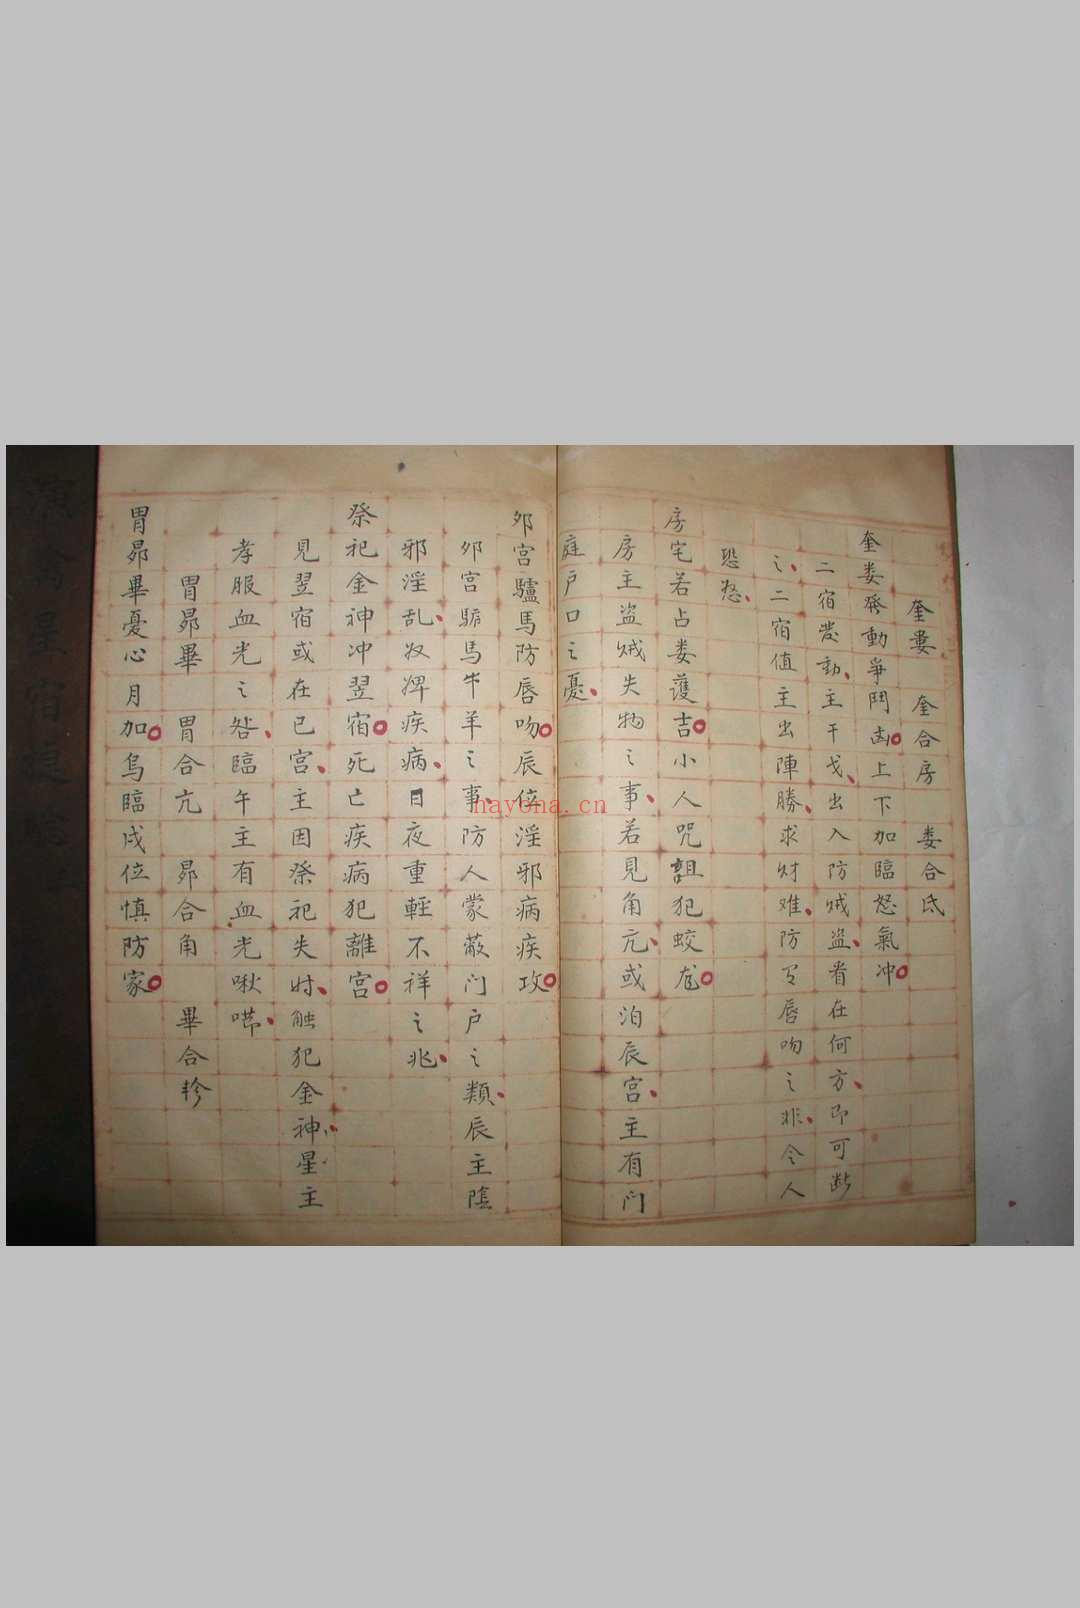 奎婁　奎合房　娄合氐
奎娄發動爭鬥凶上下加臨怒氣冲
二宿發動主干戈出入防贼盗看在何方即可断
之二宿值主出陣勝求财难防唇吻之非令人
恐怒
房宅若占娄護吉小人咒詛犯蛟尨
房主盗贼失物之事若見角亢或泊辰宫主有门
庭户口之憂
夘宫驢馬防唇吻辰位淫邪病疾攻
夘宫馿馬牛羊之事防人蒙蔽门户之類辰主陰
邪淫乱奴婢疾病日夜重輕不祥之兆
祭祀金神冲翌宿死亡疾病犯離宫
見翌宿或在巳宫主因祭祀失时触犯金神星主
孝服血光之咎臨午主有血光啾唧
胃昴畢　胃合亢　昴合角　畢合軫
胃昴畢憂心月加烏臨戌位慎防家
星宿
hayona.cn